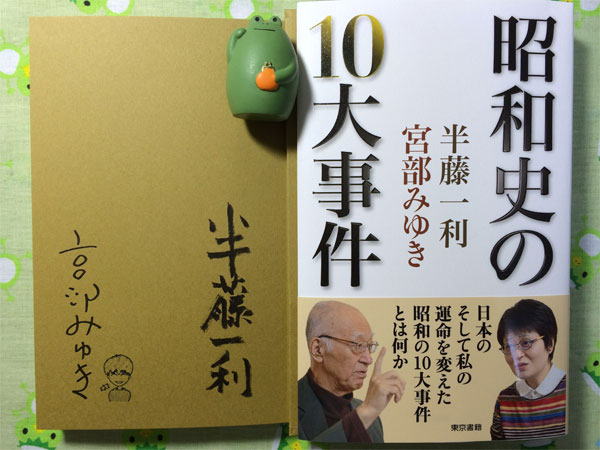 昭和史の
10大事件
半藤一利
宮部みゆき
日本の
そして私の
運命を変えた
昭和の10大事件
とは何か
東京書籍
半藤一利
宮部みゆき